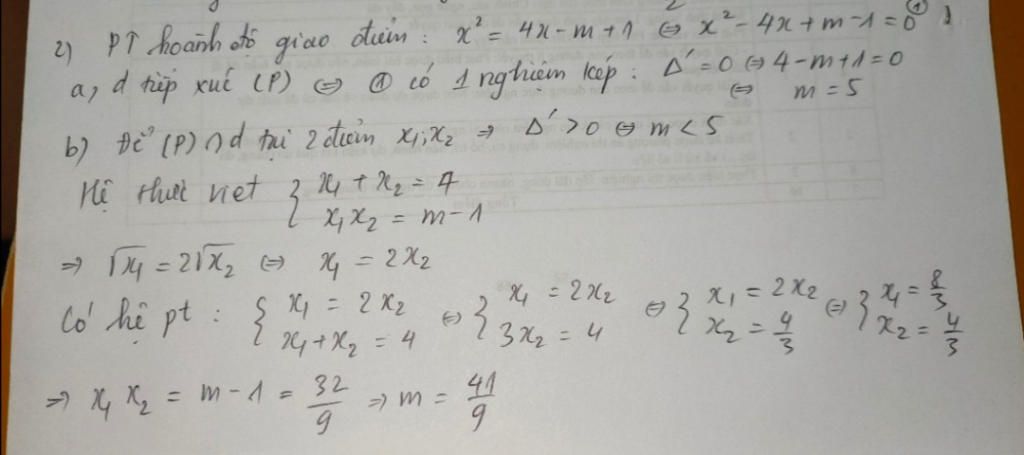 2) PT hoành độ giao điểm : x² = 4x - m + 1 ⇔ x² - 4x + m - 1 = 0 ①
a, d tiếp xúc (P) ⇔ ① có 1 nghiệm kép : Δ' = 0 ⇔ 4 - m + 1 = 0
⇔ m = 5
b) Để (P) ∩ d tại 2 điểm x₁; x₂ ⇒ Δ' > 0 ⇔ m < 5
Hệ thức viet { x₁ + x₂ = 4
x₁ x₂ = m - 1
⇒ √x₁ = 2√x₂ ⇔ x₁ = 2x₂
Có hệ pt : { x₁ = 2x₂ ⇔ { x₁ = 2x₂ ⇔ { x₁ = 2x₂ ⇔ { x₁ = 8/3
x₁ + x₂ = 4 3x₂ = 4 x₂ = 4/3 x₂ = 4/3
⇒ x₁ x₂ = m - 1 = 32/9 ⇒ m = 41/9